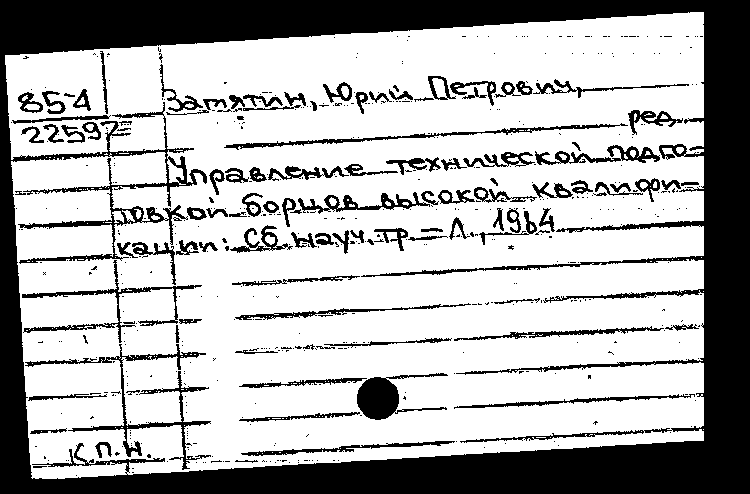 85-4
22592
Замятин, Юрий Петрович,
ред.
Управление технической подго=
товкой борцов высокой квалифи-
кации: Сб. науч. тр. = Л., 1984
К.П.Н.